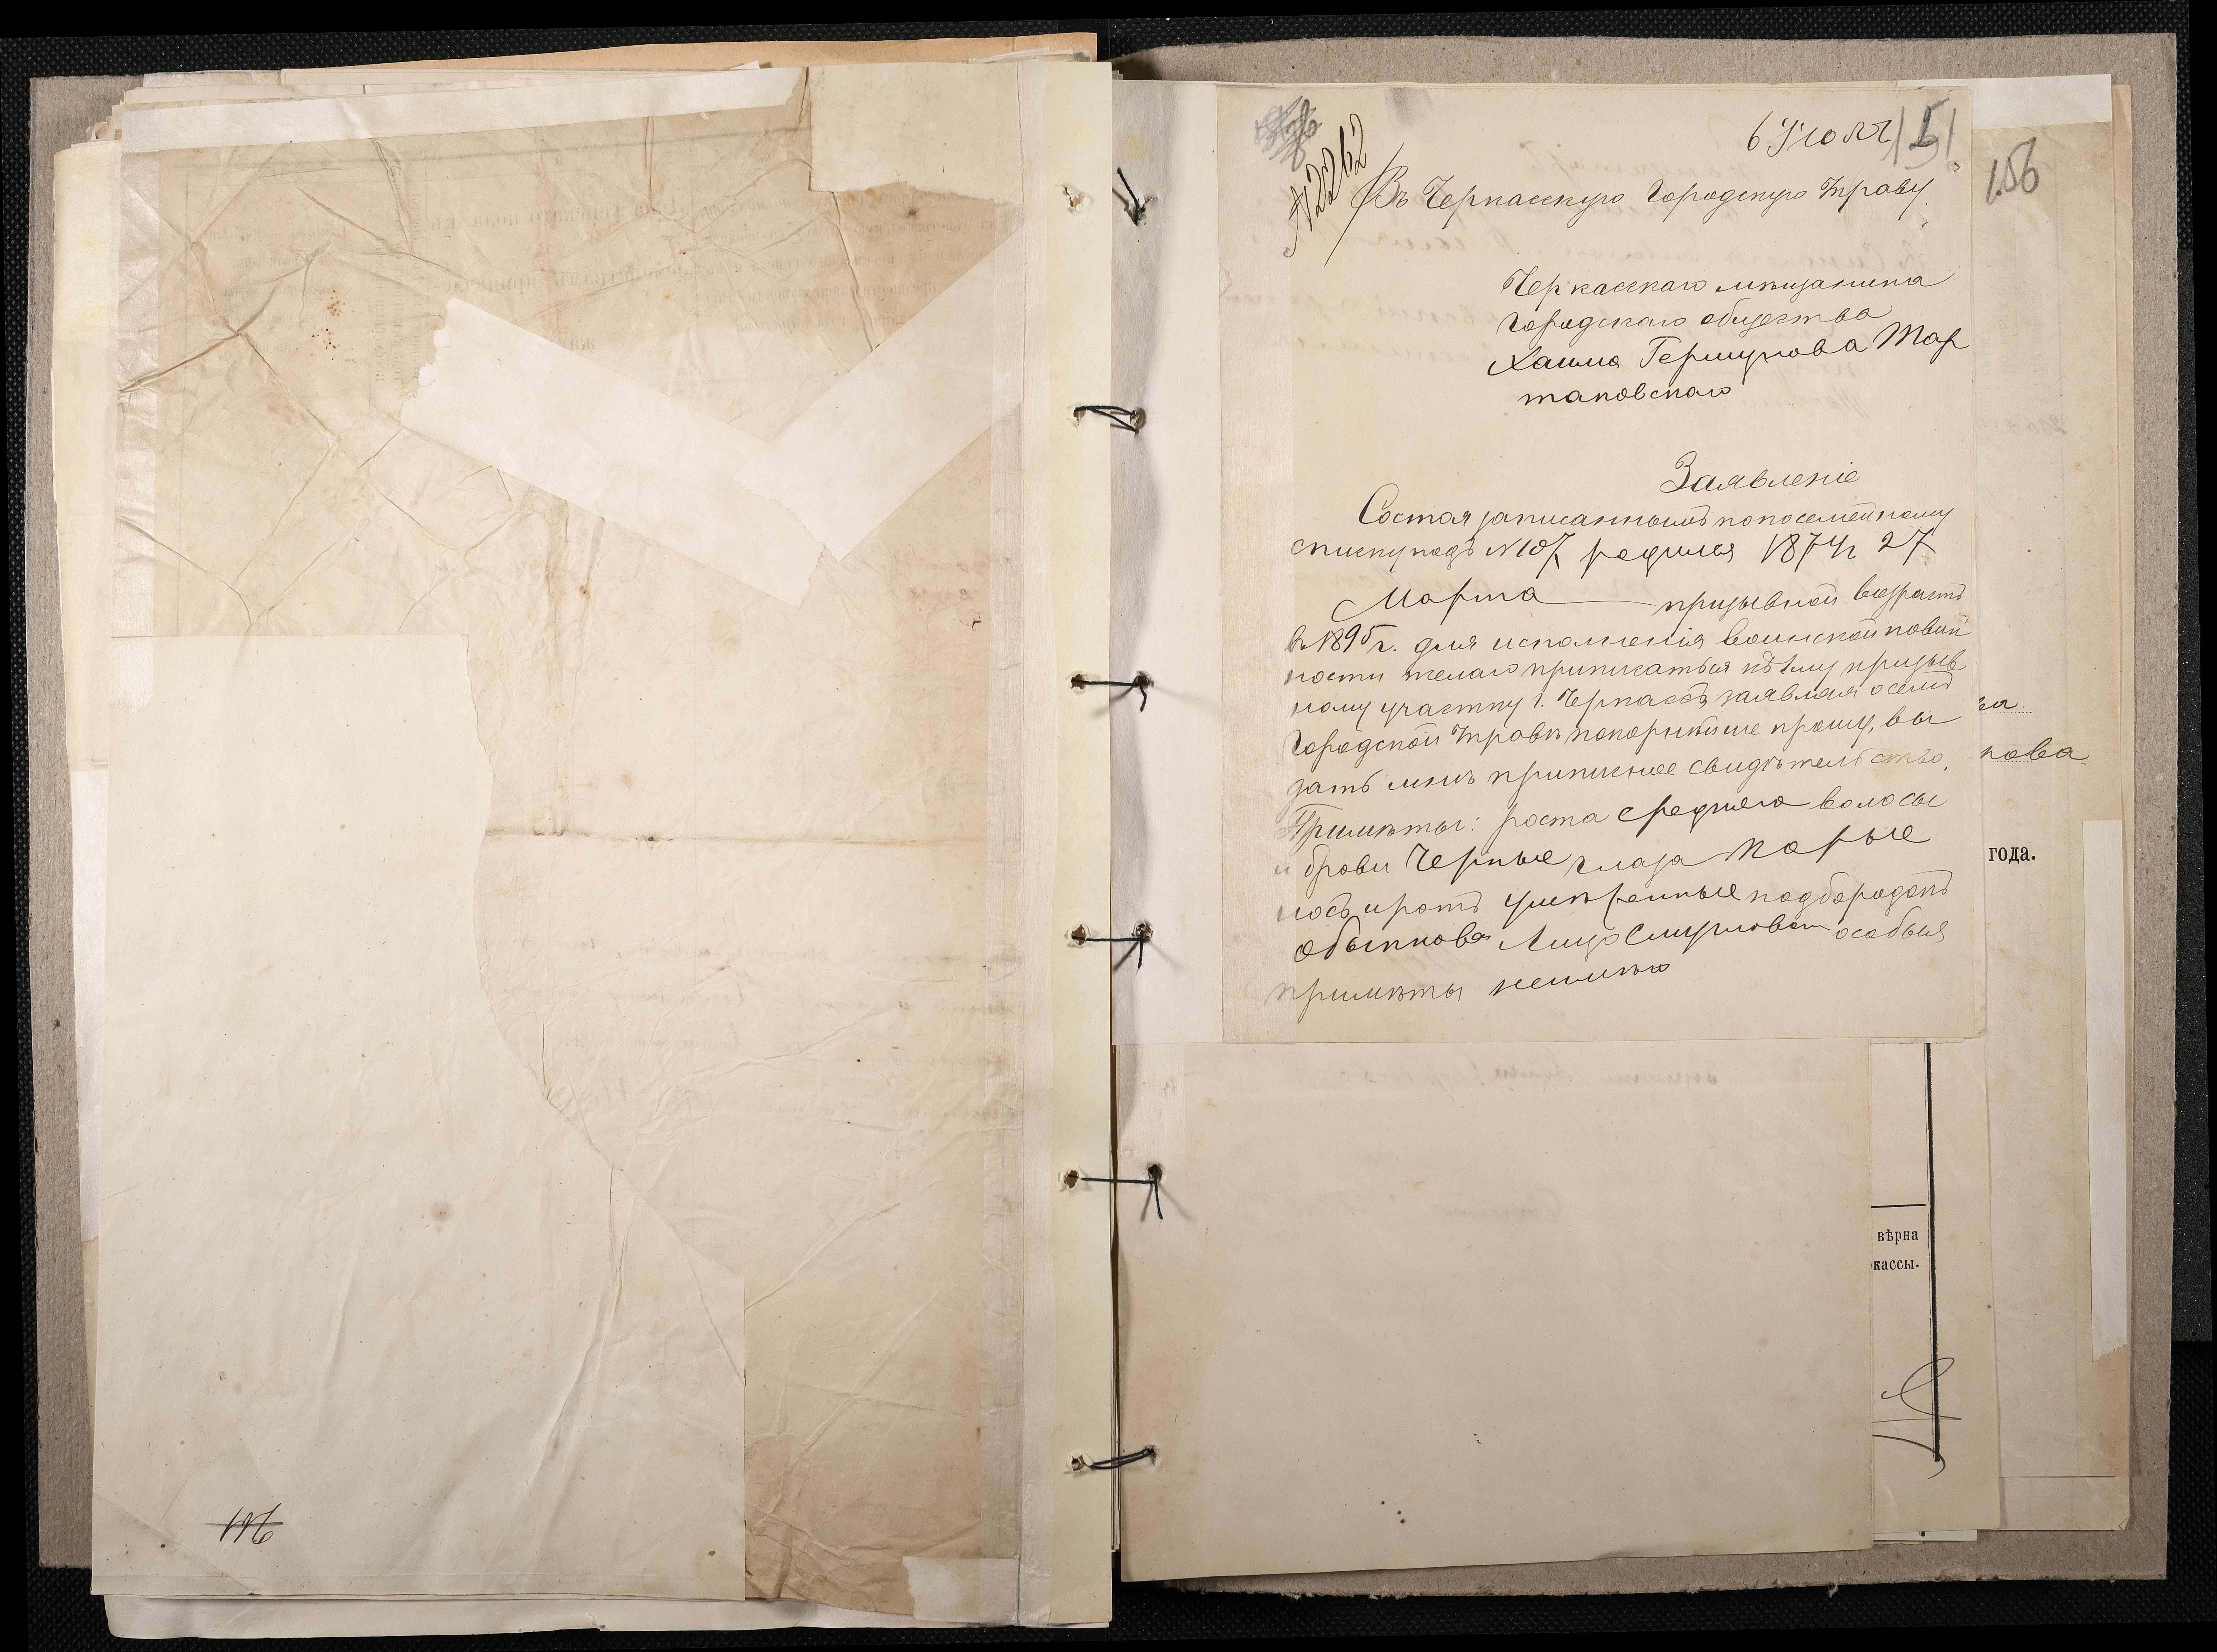 6 Июля 151
156
№ 2262
Въ Черкасскую Городскую Управу.
Черкасскаго мѣщанина
Городскаго общества
Хаима Гершунова Тар
таковскаго
Заявленіе
Состоя записаннымъ по посемейному
списку подъ № 107, родился 1874 г 27
Марта призывной возрастъ
въ 1895 г. для исполненія воинской повин
ности желаю приписаться къ 1му призыв
ному участку г. Черкассъ заявляя о семъ
Городской Управѣ покорнѣйше прошу, вы
дать мнѣ приписное свидѣтельство.
Примѣты: роста средняго волосы
и брови Черные глаза Карые
носъ и ротъ умѣренные подбородокъ
обыкнов Лицо Смуглов особыя
примѣты неимѣю
ка
кова
года.
вѣрна
кассы.